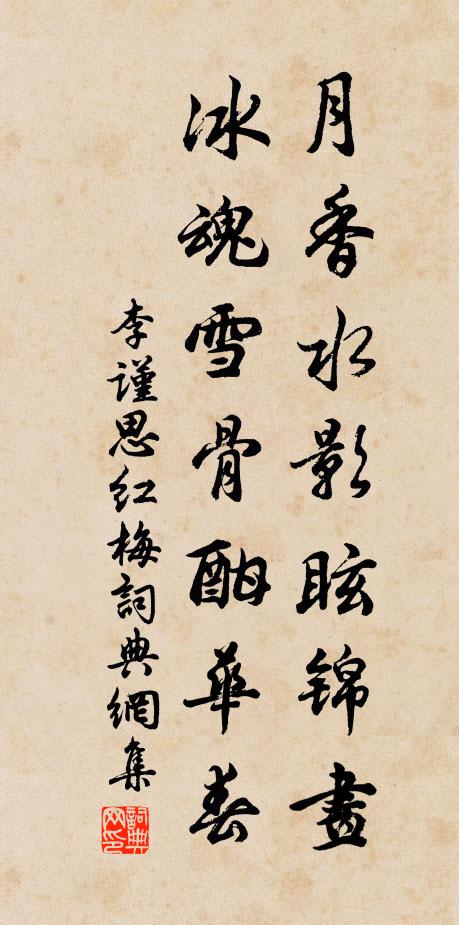 月香水影眩錦畫
冰魂雪骨酣華春
李謹思紅梅詞典網集
詞典网印